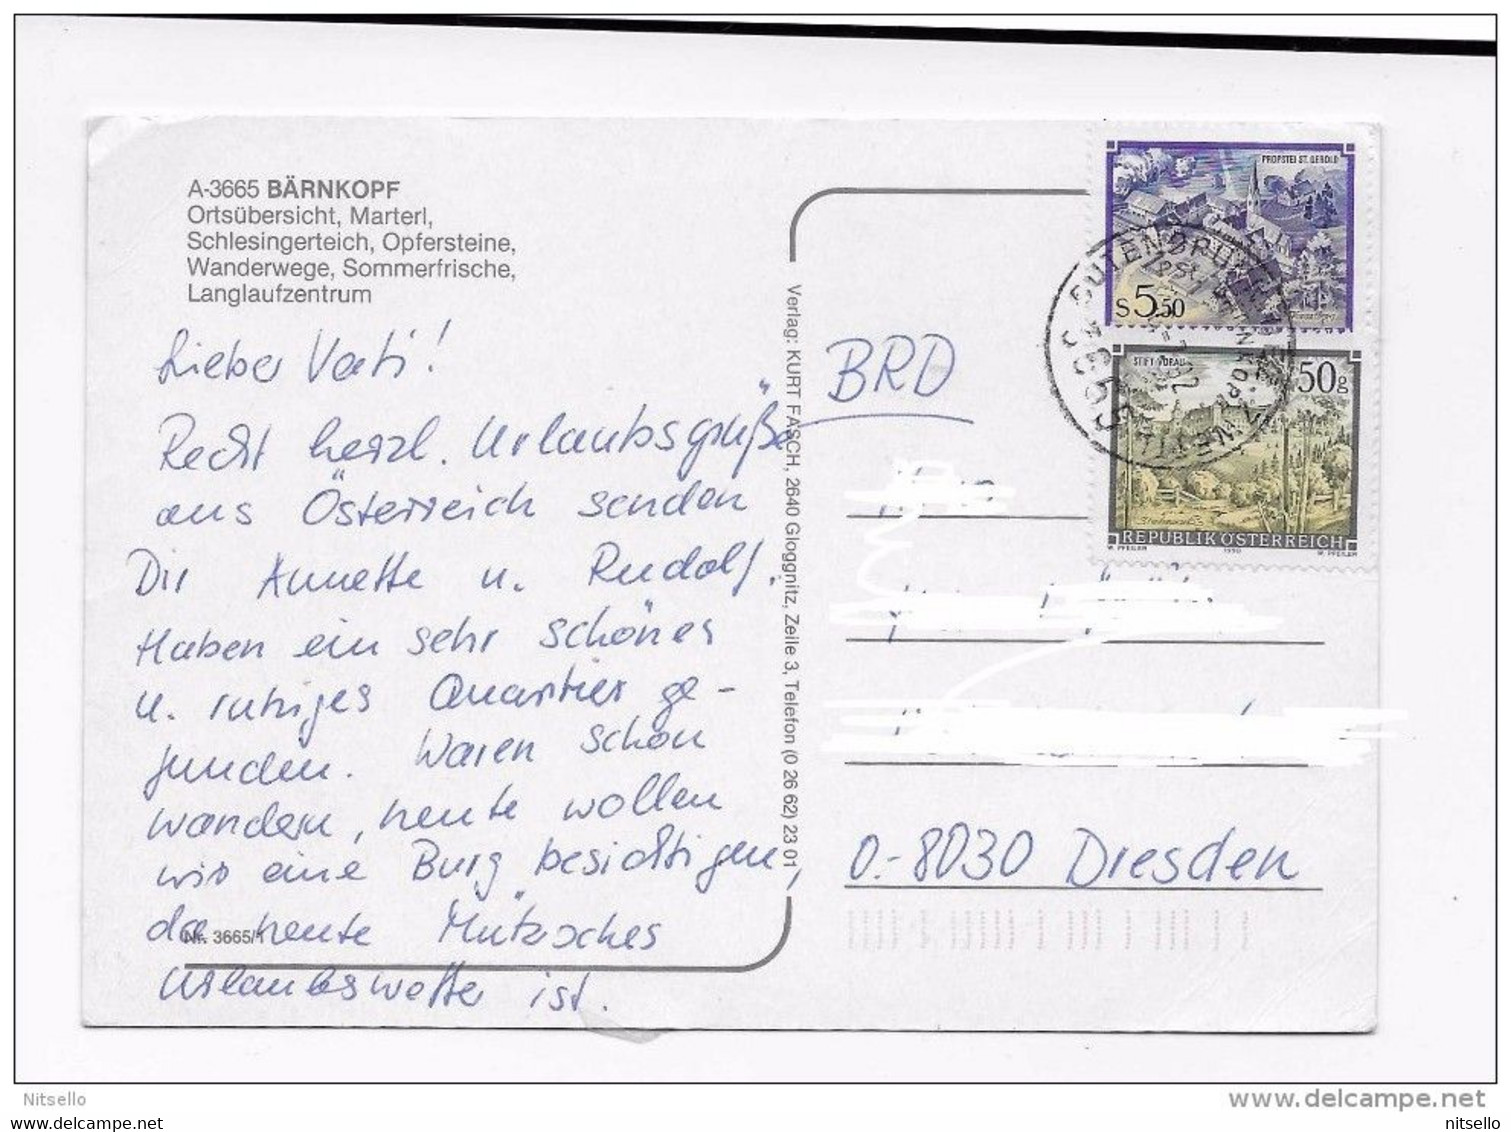 A-3665 BÄRNKOPF
Ortsübersicht, Marterl,
Schlesingerteich, Opfersteine,
Wanderwege, Sommerfrische,
Langlaufzentrum
Lieber Vati!
Recht herzl. Urlaubsgrüße
aus Österreich senden
Dir Annette u. Rudolf.
Haben ein sehr schönes
u. ruhiges Quartier ge-
funden. Waren schon
wandern, heute wollen
wir eine Burg besichtigen,
da heute
Urlaubswetter ist.
Nr. 3665/1
Verlag: KURT FASCH, 2640 Gloggnitz, Zeile 3, Telefon (0 26 62) 23 01
BRD
O.-8030 Dresden
PROPSTEI ST. GEROLD
S 5.50
STIFT VORAU
50g
REPUBLIK ÖSTERREICH
W. PFEILER 1990 W. PFEILER
3665
Nitsello
www.delcampe.net
nitsello
nitsello